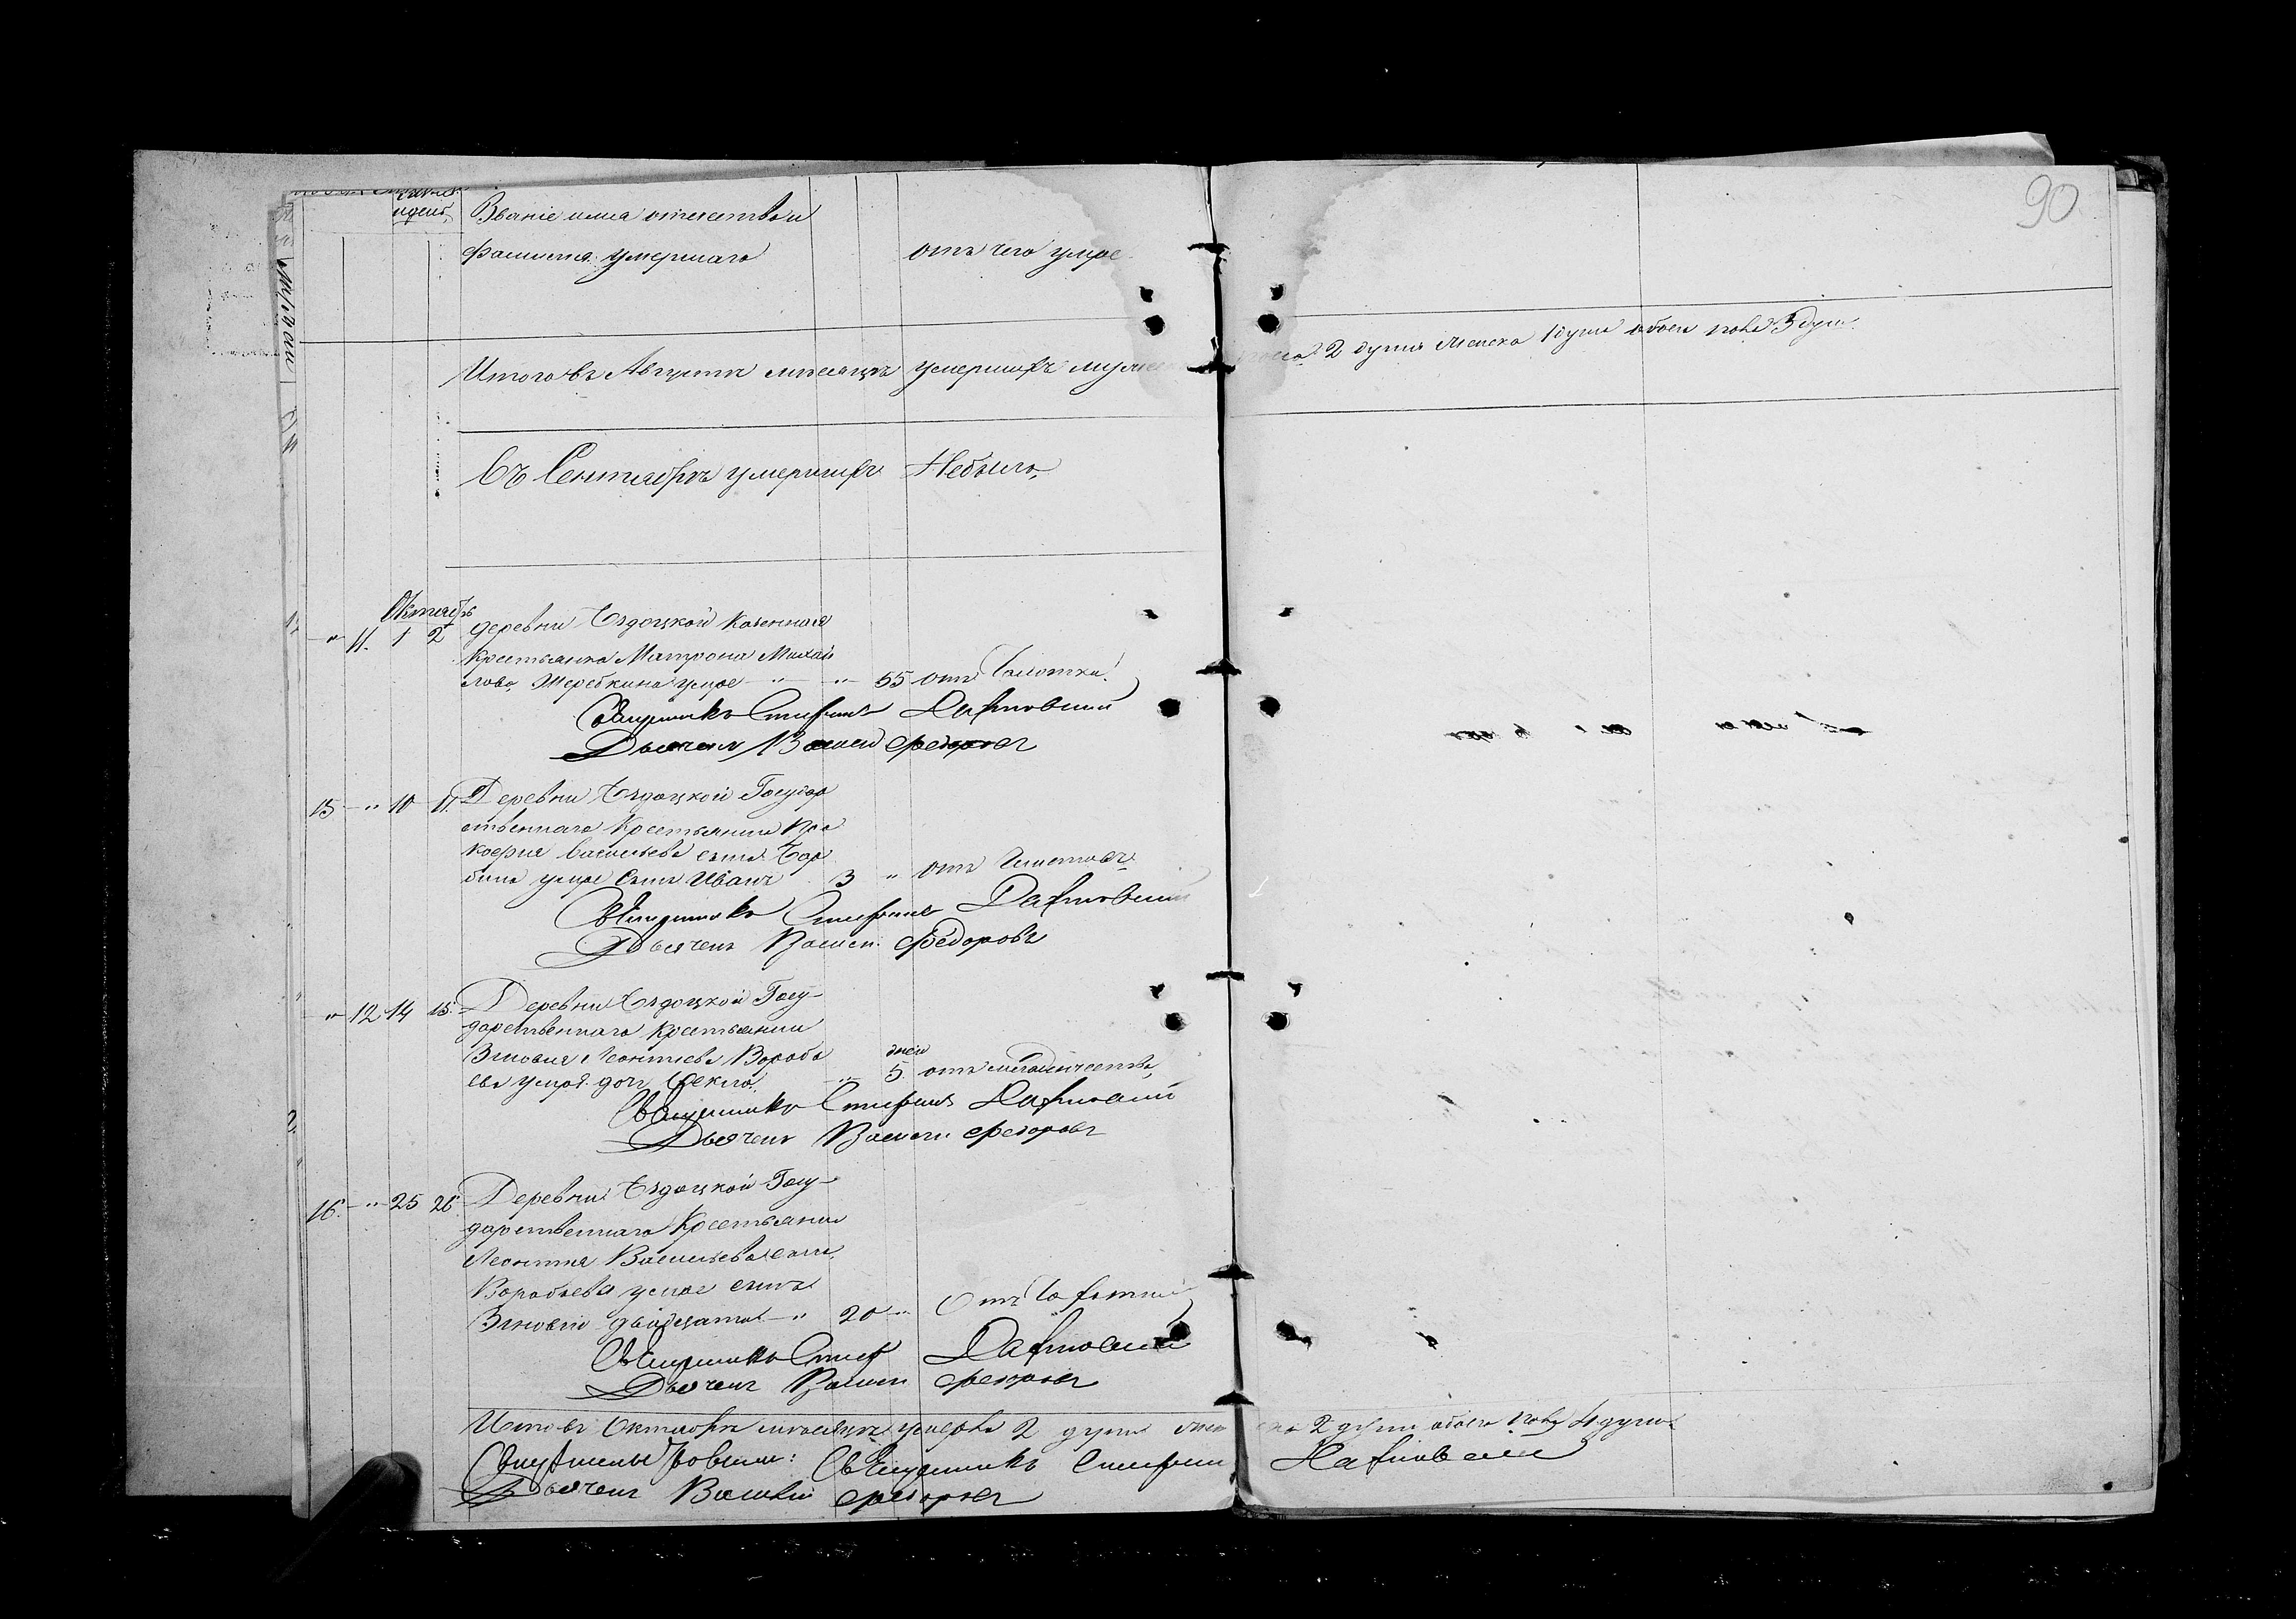 90
Званіе имя отечество и
Фамилія умершаго
отъ чего умре
Итого въ Августѣ мѣсяцѣ умершихъ мужес пола 2 души женска 1 душа обоего пола 3 душ.
Въ Сентябрѣ умершихъ Небыло,
Октябрь
" 11. 1 2 деревни Ездоцкой казенная
крестьянка Матрона Михай
лова, Жеребкина умре " " 55 отъ Чахотки
Священникъ Стефанъ
Дьячекъ Василій Федоровъ
15 " 10 11 Деревни Ездоцкой Государ
ственнаго Крестьянина Про
кофія Васильева сына
умре сынъ Иванъ 3 " отъ
Священникъ Стефанъ
Дьячекъ Василій Федоровъ
" 12 14 15 Деревни Ездоцкой Госу-
дарственнаго Крестьянина
Зиновія Леонтьева Воробь
ева умре дочь Фекла дней 5. отъ младенчества,
Священникъ Стефанъ
Дьячекъ Василій Федоровъ
16. " 25 26 Деревни Ездоцкой Госу-
дарственнаго Крестьянина
Леонтія Васильева сына
Воробьева умре сынъ
Зиновій двадцати " 20 " Отъ
Священникъ Стеф
Дьячекъ Василій Федоровъ
Итого въ Октябрѣ мѣсяцѣ умерло 2 души женска 2 души обоего пола 4 души
Священникъ Стефанъ
Дьячекъ Василій Федоровъ